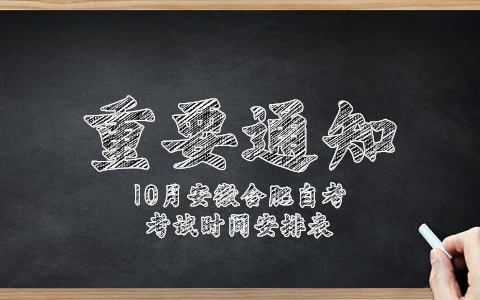 重要通知
10月安徽合肥自考
考试时间安排表